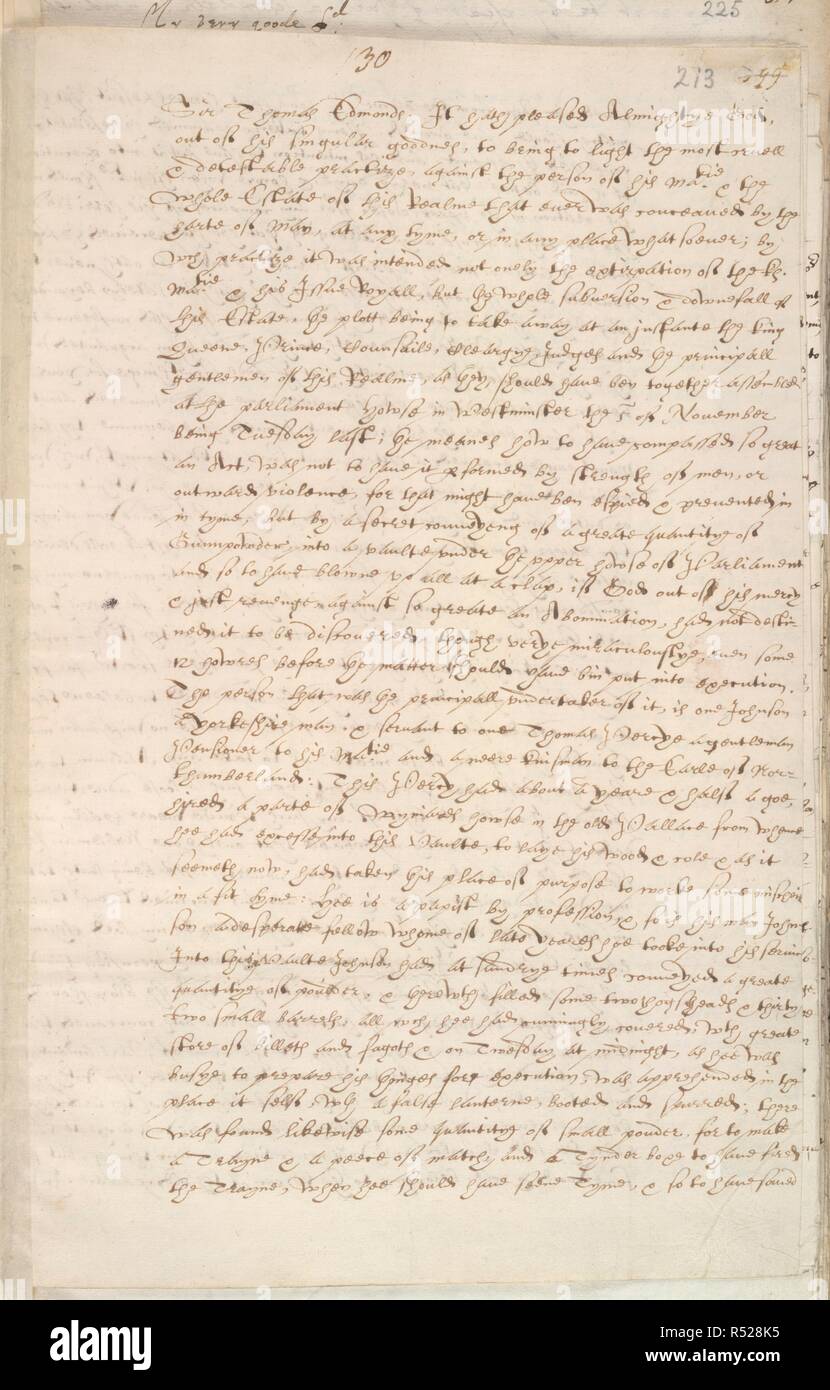 My verr goode Ld
225
130
213
Sir Thomas Edmonds, It hath pleased Almightye God,
out of his singular goodnes, to bring to light the most cruell
& detestable practize, against the person of his Matie & the
whole Estate of this Realme that ever was conceaved by the
harte of Man, at any tyme, or in any place whatsoever; by
wch practize it was intended not onely the extirpation of the k.
Matie & his Issue Royall, but the whole subversion & downefall of
this Estate, the plott being to take away at an instante the king
Queene, Prince, Counsaile, Cleargye, Judges and the principall
gentlemen of this Realme, as they should have ben together assembled
at the parliament howse in Westminster the 5 of November
being Tuesday last; the meanes how to have compassed so great
an Act, was not to have it pformed by strength of men, or
outward violence, for that might have ben espied & prevented in
in tyme, but by a secret conveyeng of a greate quantitye of
Gunpowder into a vaulte under the upper howse of Parliament
and so to have blowne up all at a clap, if God out of his mercy
& just revenge against so greate an Abomination, had not desti-
ned it to be discovered, though verye miraculouslye, even some
12 howres before the matter should have bin put into execution.
The person that was the principall undertaker of it, is one Johnson
a Yorkeshire man, & servant to one Thomas Percye a gentleman
Pensioner to his Matie and a neere kinsman to the Earle of Nor-
thumberland: This Percy had about a yeare & half a goe,
hyred a parte of Wyniards howse in the old Pallace from whence
hee had accesse into this Vaulte, to laye his wood & cole & as it
seemeth now, had taken this place of purpose to worke some mischeif
in a fit tyme: Hee is a papist by profession, & so is his man John-
son a desperate fellow whome of late yeares hee tooke into his service
Into this Vaulte Johnson had at sundrye times conveyed a greate
quantitye of powder, & therewth filled some two hogsheads & thirty
two small barrels, all wch hee had cunningly covered wth great
store of billets and fagots & on Twesday at midnight, as hee was
busye to prepare his thinges for execution, was apprehended in the
place it self, wth a false lanterne, booted and spurred; there
was found likewise some quantity of small pouder, for to make
a Trayne & a peece of match, and a Tynder boxe to have fired
the Trayne, when hee should have seene Tyme, & so to have saved
alamy
Image ID: R528K5
www.alamy.com